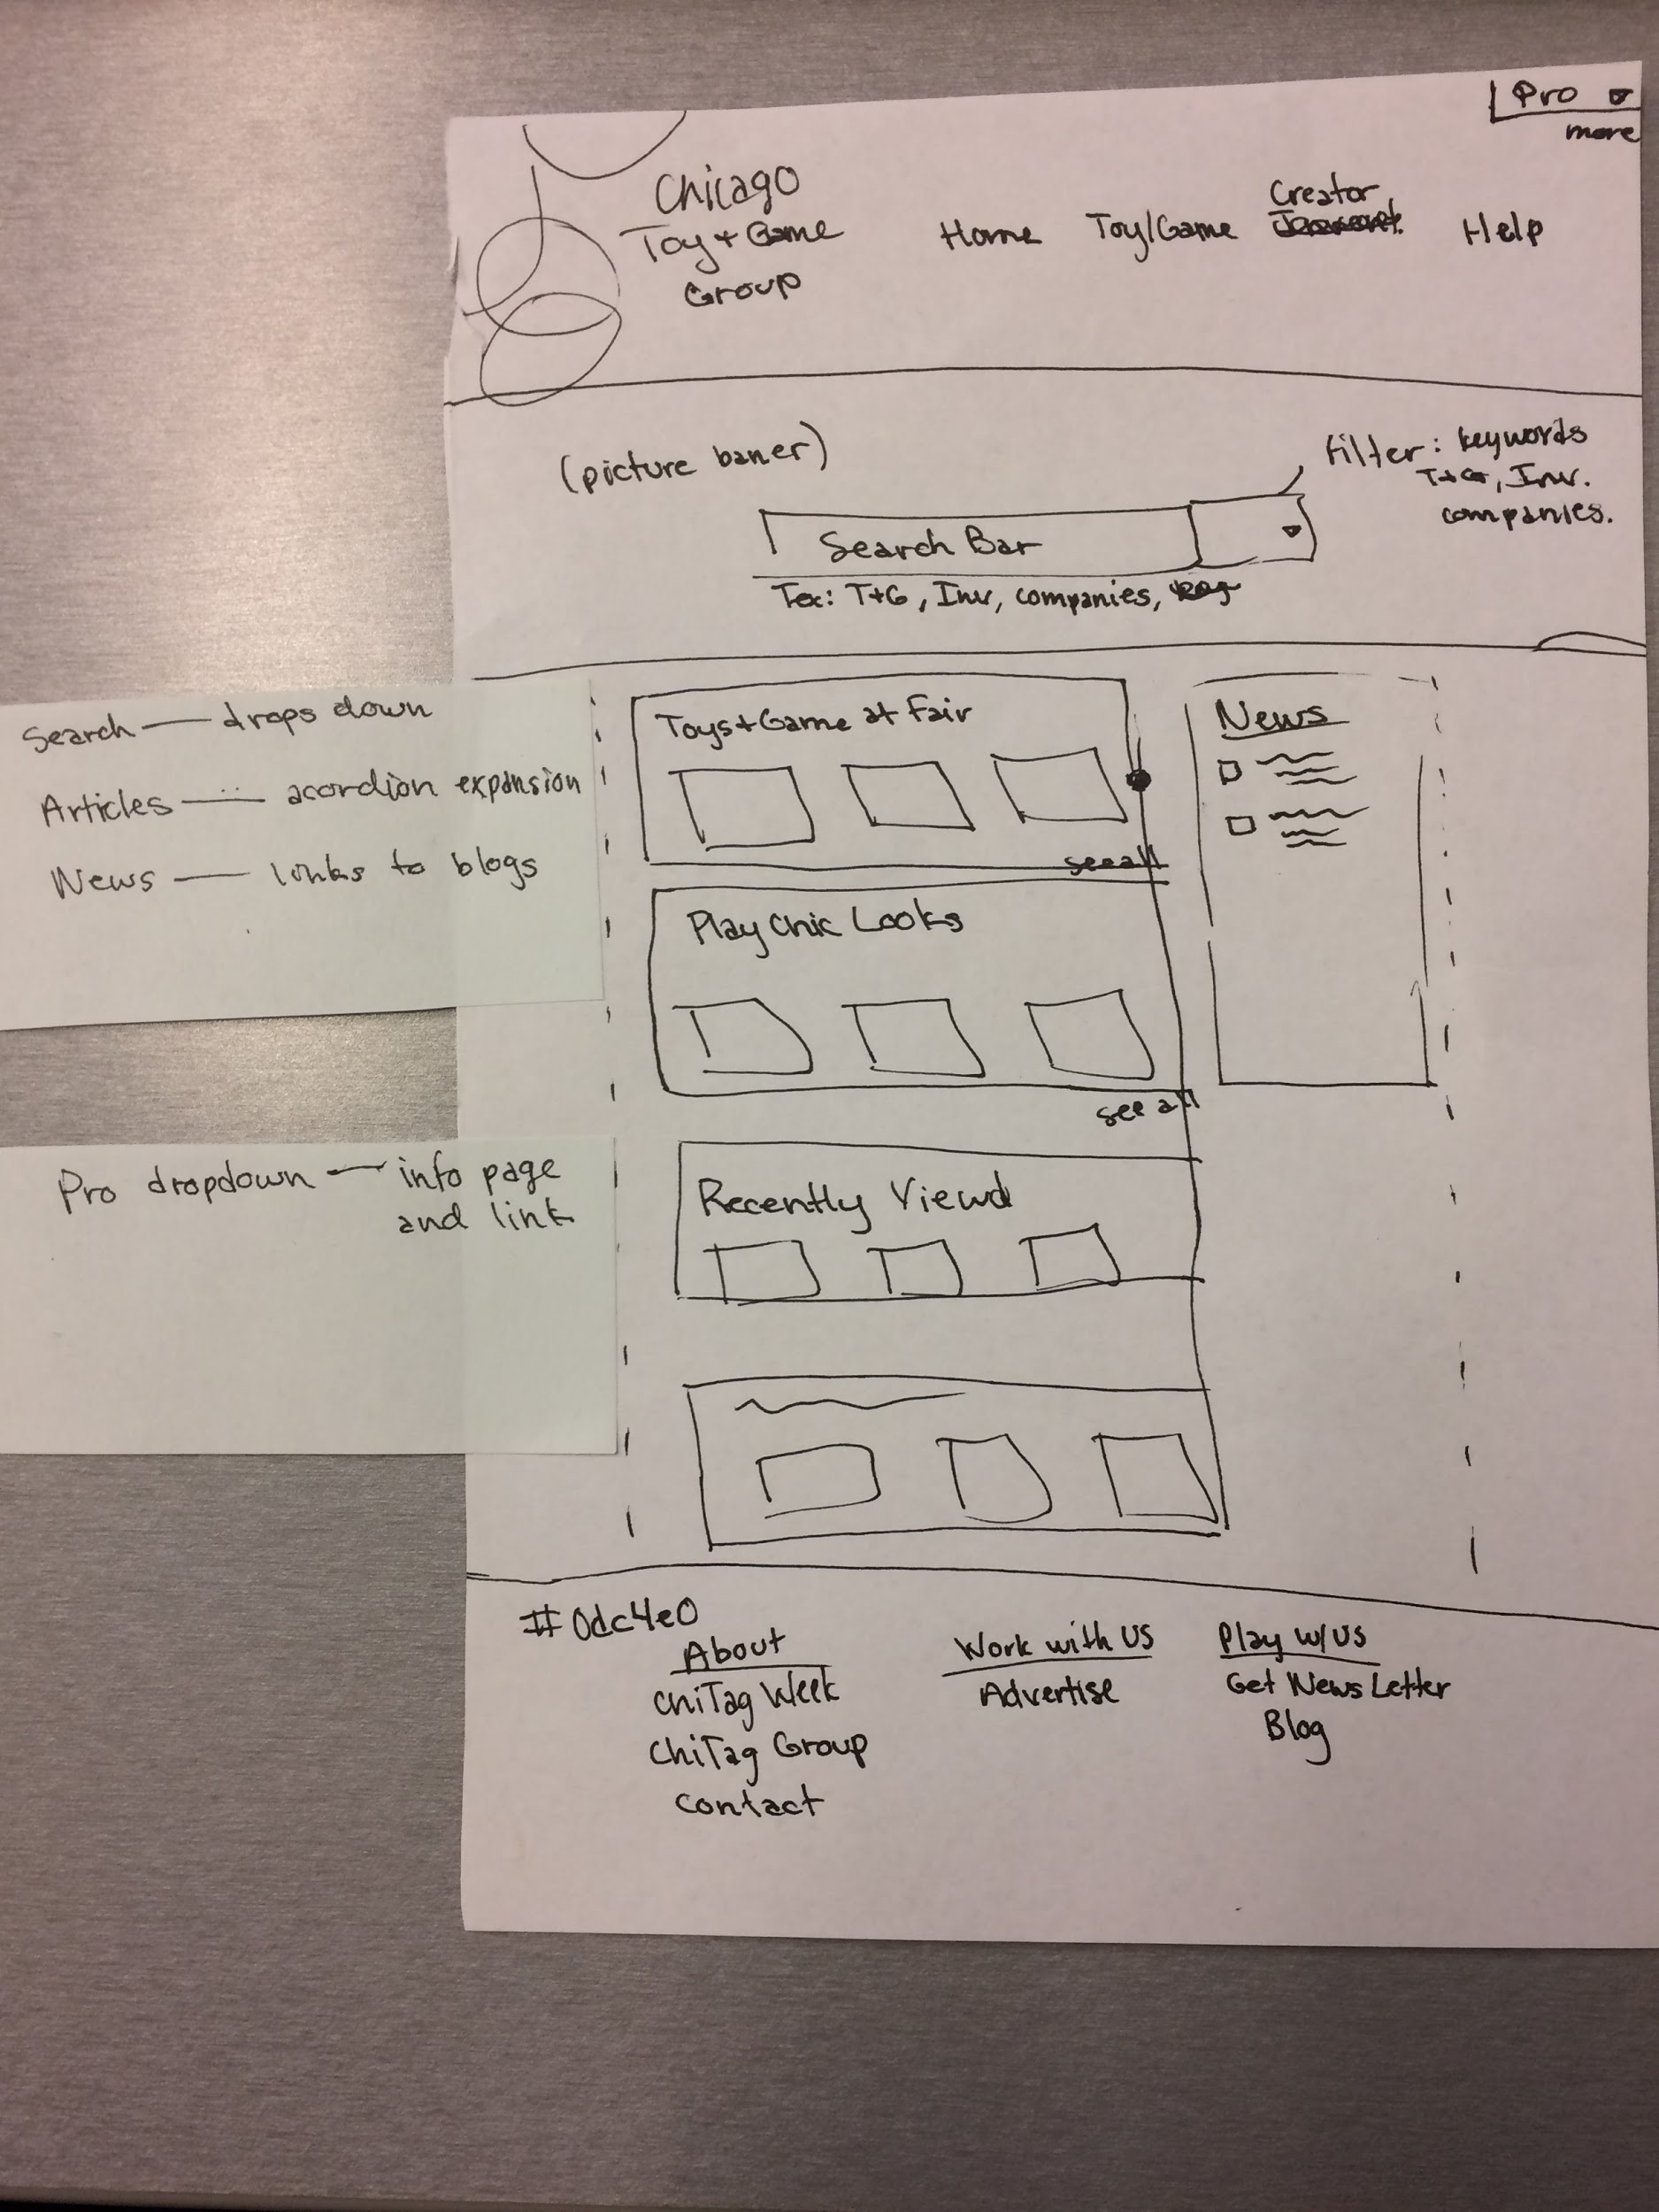 Pro
more
Chicago
Toy + Game
Group
Home
Toy/Game
Creator
Help
(picture baner)
filter: keywords
T+G, Inv.
companies.
Search Bar
Tex: T+G, Inv, companies,
Search — drops down
Articles — acordion expansion
News — links to blogs
Toys+Game at Fair
see all
News
Play Chic Looks
see all
Pro dropdown — info page
and link
Recently Viewd
#0dc4e0
About
ChiTag Week
ChiTag Group
Contact
Work with US
Advertise
Play w/US
Get News Letter
Blog